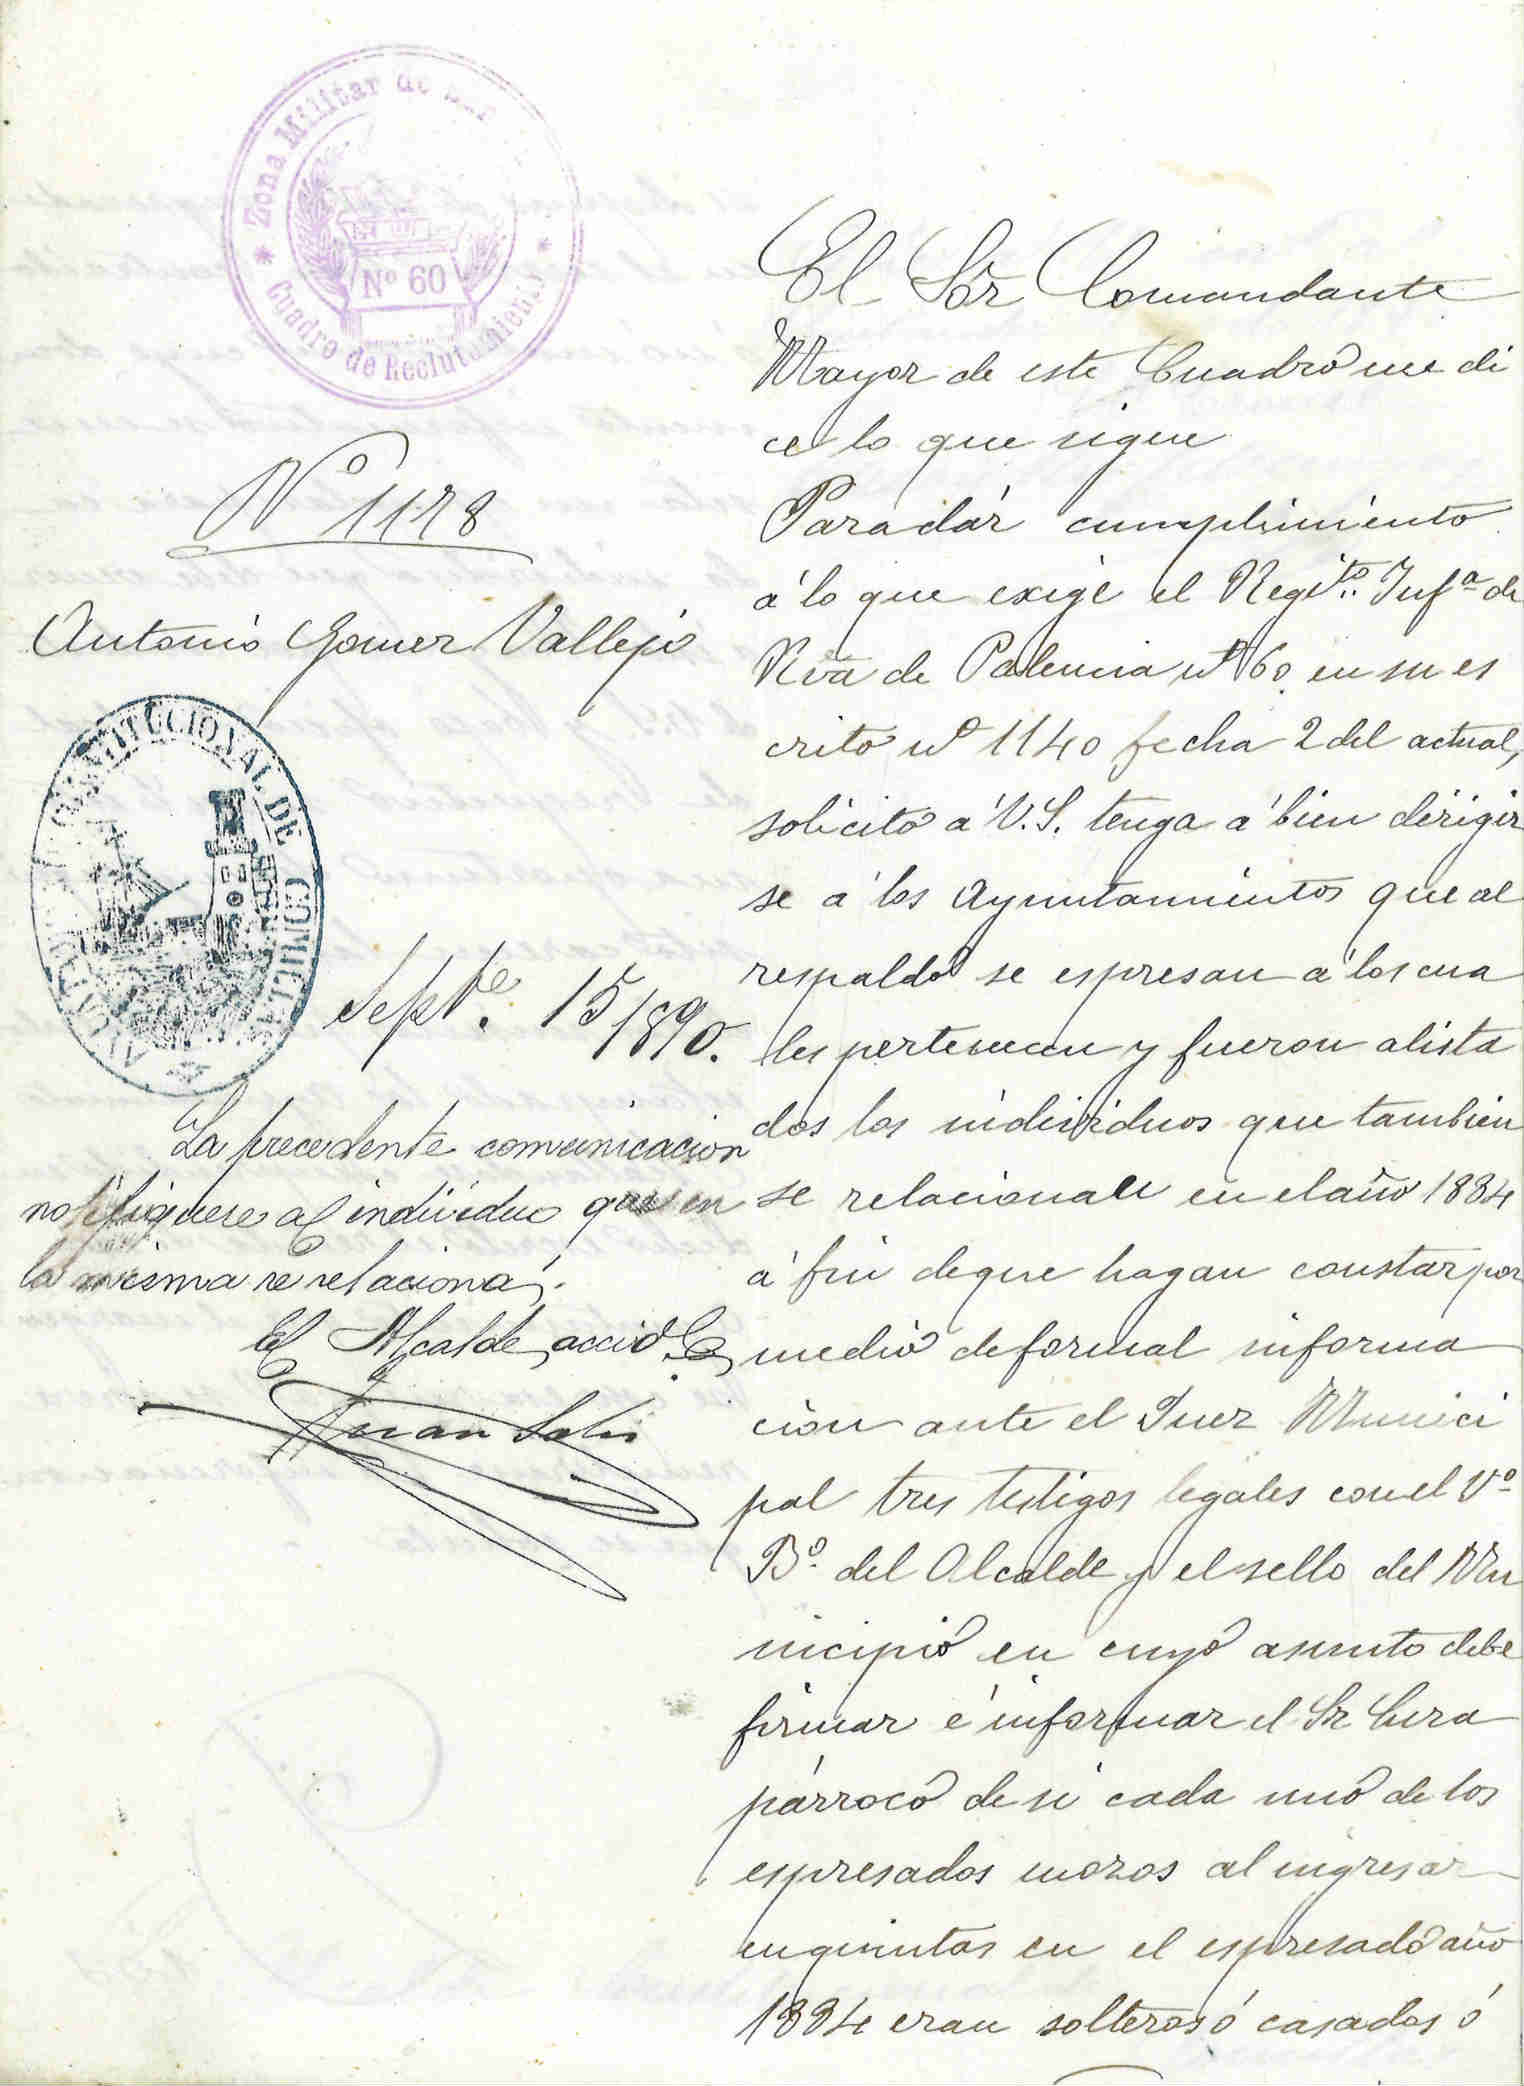 Zona Militar de
Nº 60
Cuadro de Reclutamiento
Nº 1178
Antonio Gomez Vallejo
CONSTITUCIONAL DE
Septe. 15/1890.
La precedente comunicacion
notifiquese al individuo que en
la misma se relaciona.
El Alcalde accidl.
Juan Solis
El Sor Comandante
Mayor de este Cuadro me di
ce lo que sigue
Para dár cumplimiento
á lo que exige el Regito. Infa de
Rva de Palencia nº 60 en su es
crito nº 1140 fecha 2 del actual,
solicito á V.S. tenga á bien dirigir
se á los Ayuntamientos que al
respaldo se espresan á los cua
les pertenecen y fueron alista
dos los individuos que tambien
se relacionan en el año 1884
á fin de que hagan constar por
medio de formal informa
cion ante el Juez Munici
pal tres testigos legales con el Vº
Bº del Alcalde y el sello del Mu
nicipio en cuyo asunto debe
firmar é informar el Sr Cura
párroco de si cada uno de los
espresados mozos al ingresar
en quintas en el espresado año
1884 eran solteros ó casados ó